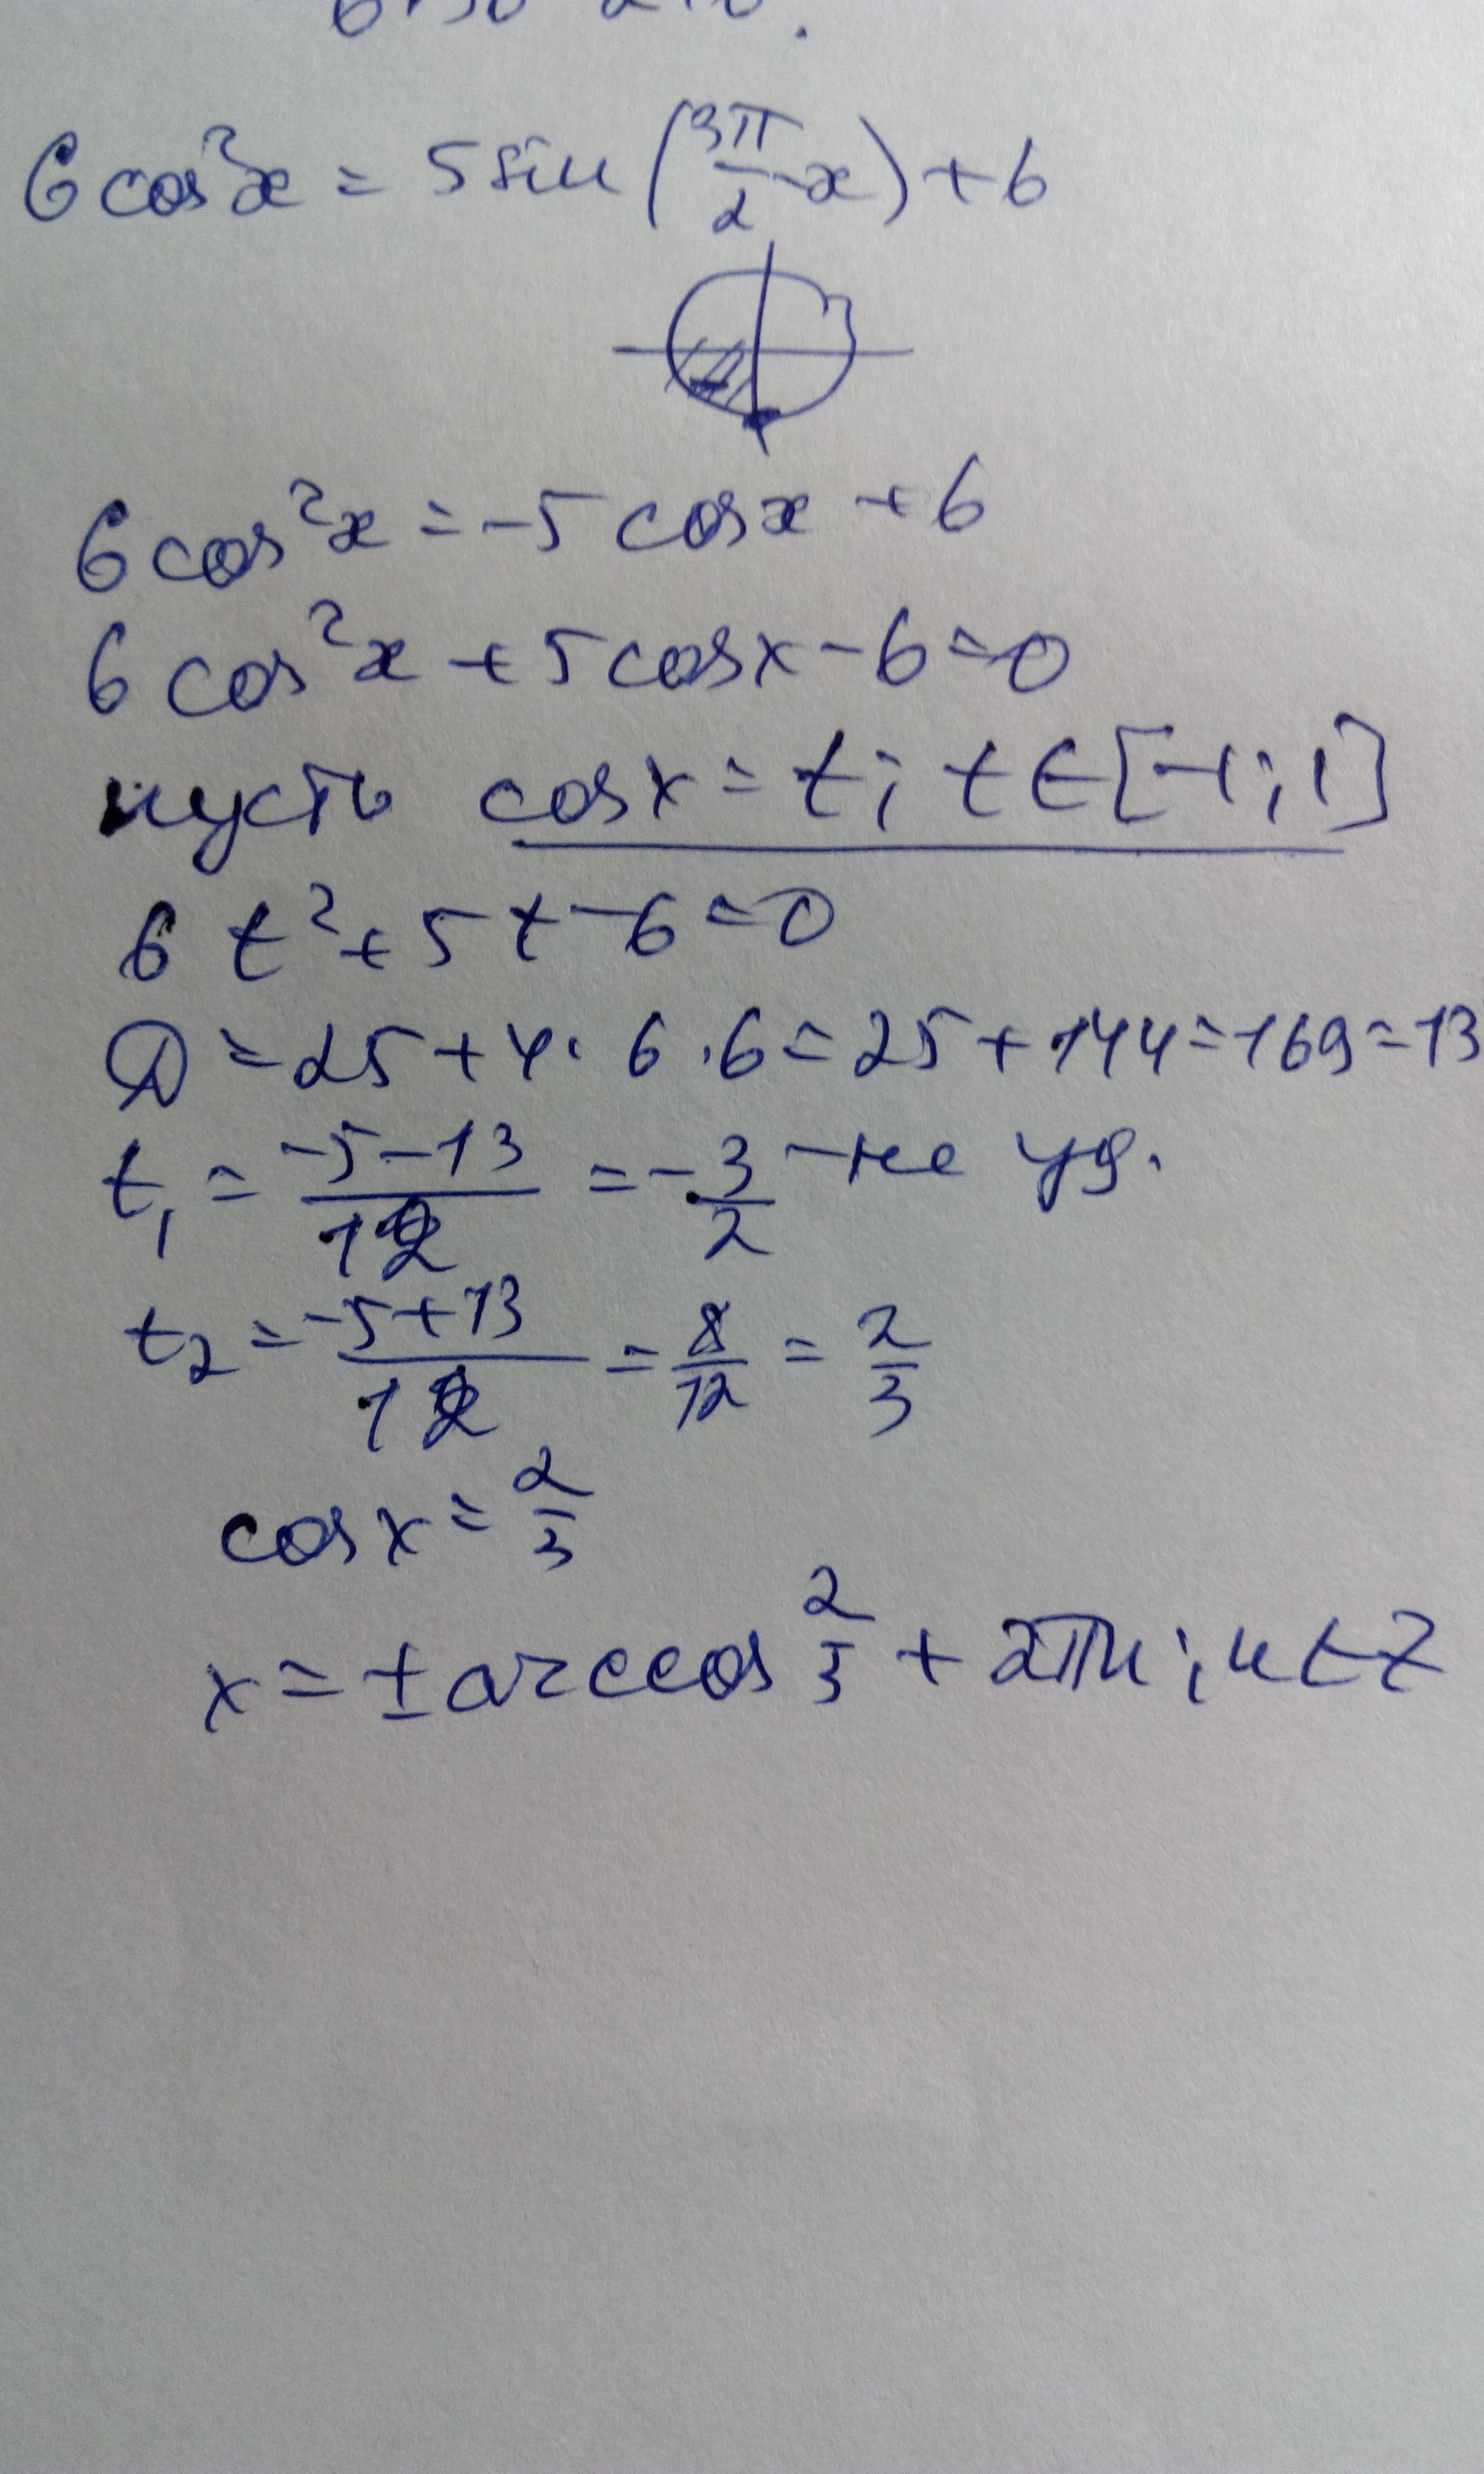 6cos²x = 5sin(3π/2 - x) + 6
6cos²x = -5cosx + 6
6cos²x + 5cosx - 6 = 0
пусть cosx = t; t ∈ [-1; 1]
6t² + 5t - 6 = 0
D = 25 + 4 · 6 · 6 = 25 + 144 = 169 = 13
t₁ = (-5-13)/12 = -3/2 - не уд.
t₂ = (-5+13)/12 = 8/12 = 2/3
cosx = 2/3
x = ± arccos 2/3 + 2πn; n ∈ Z